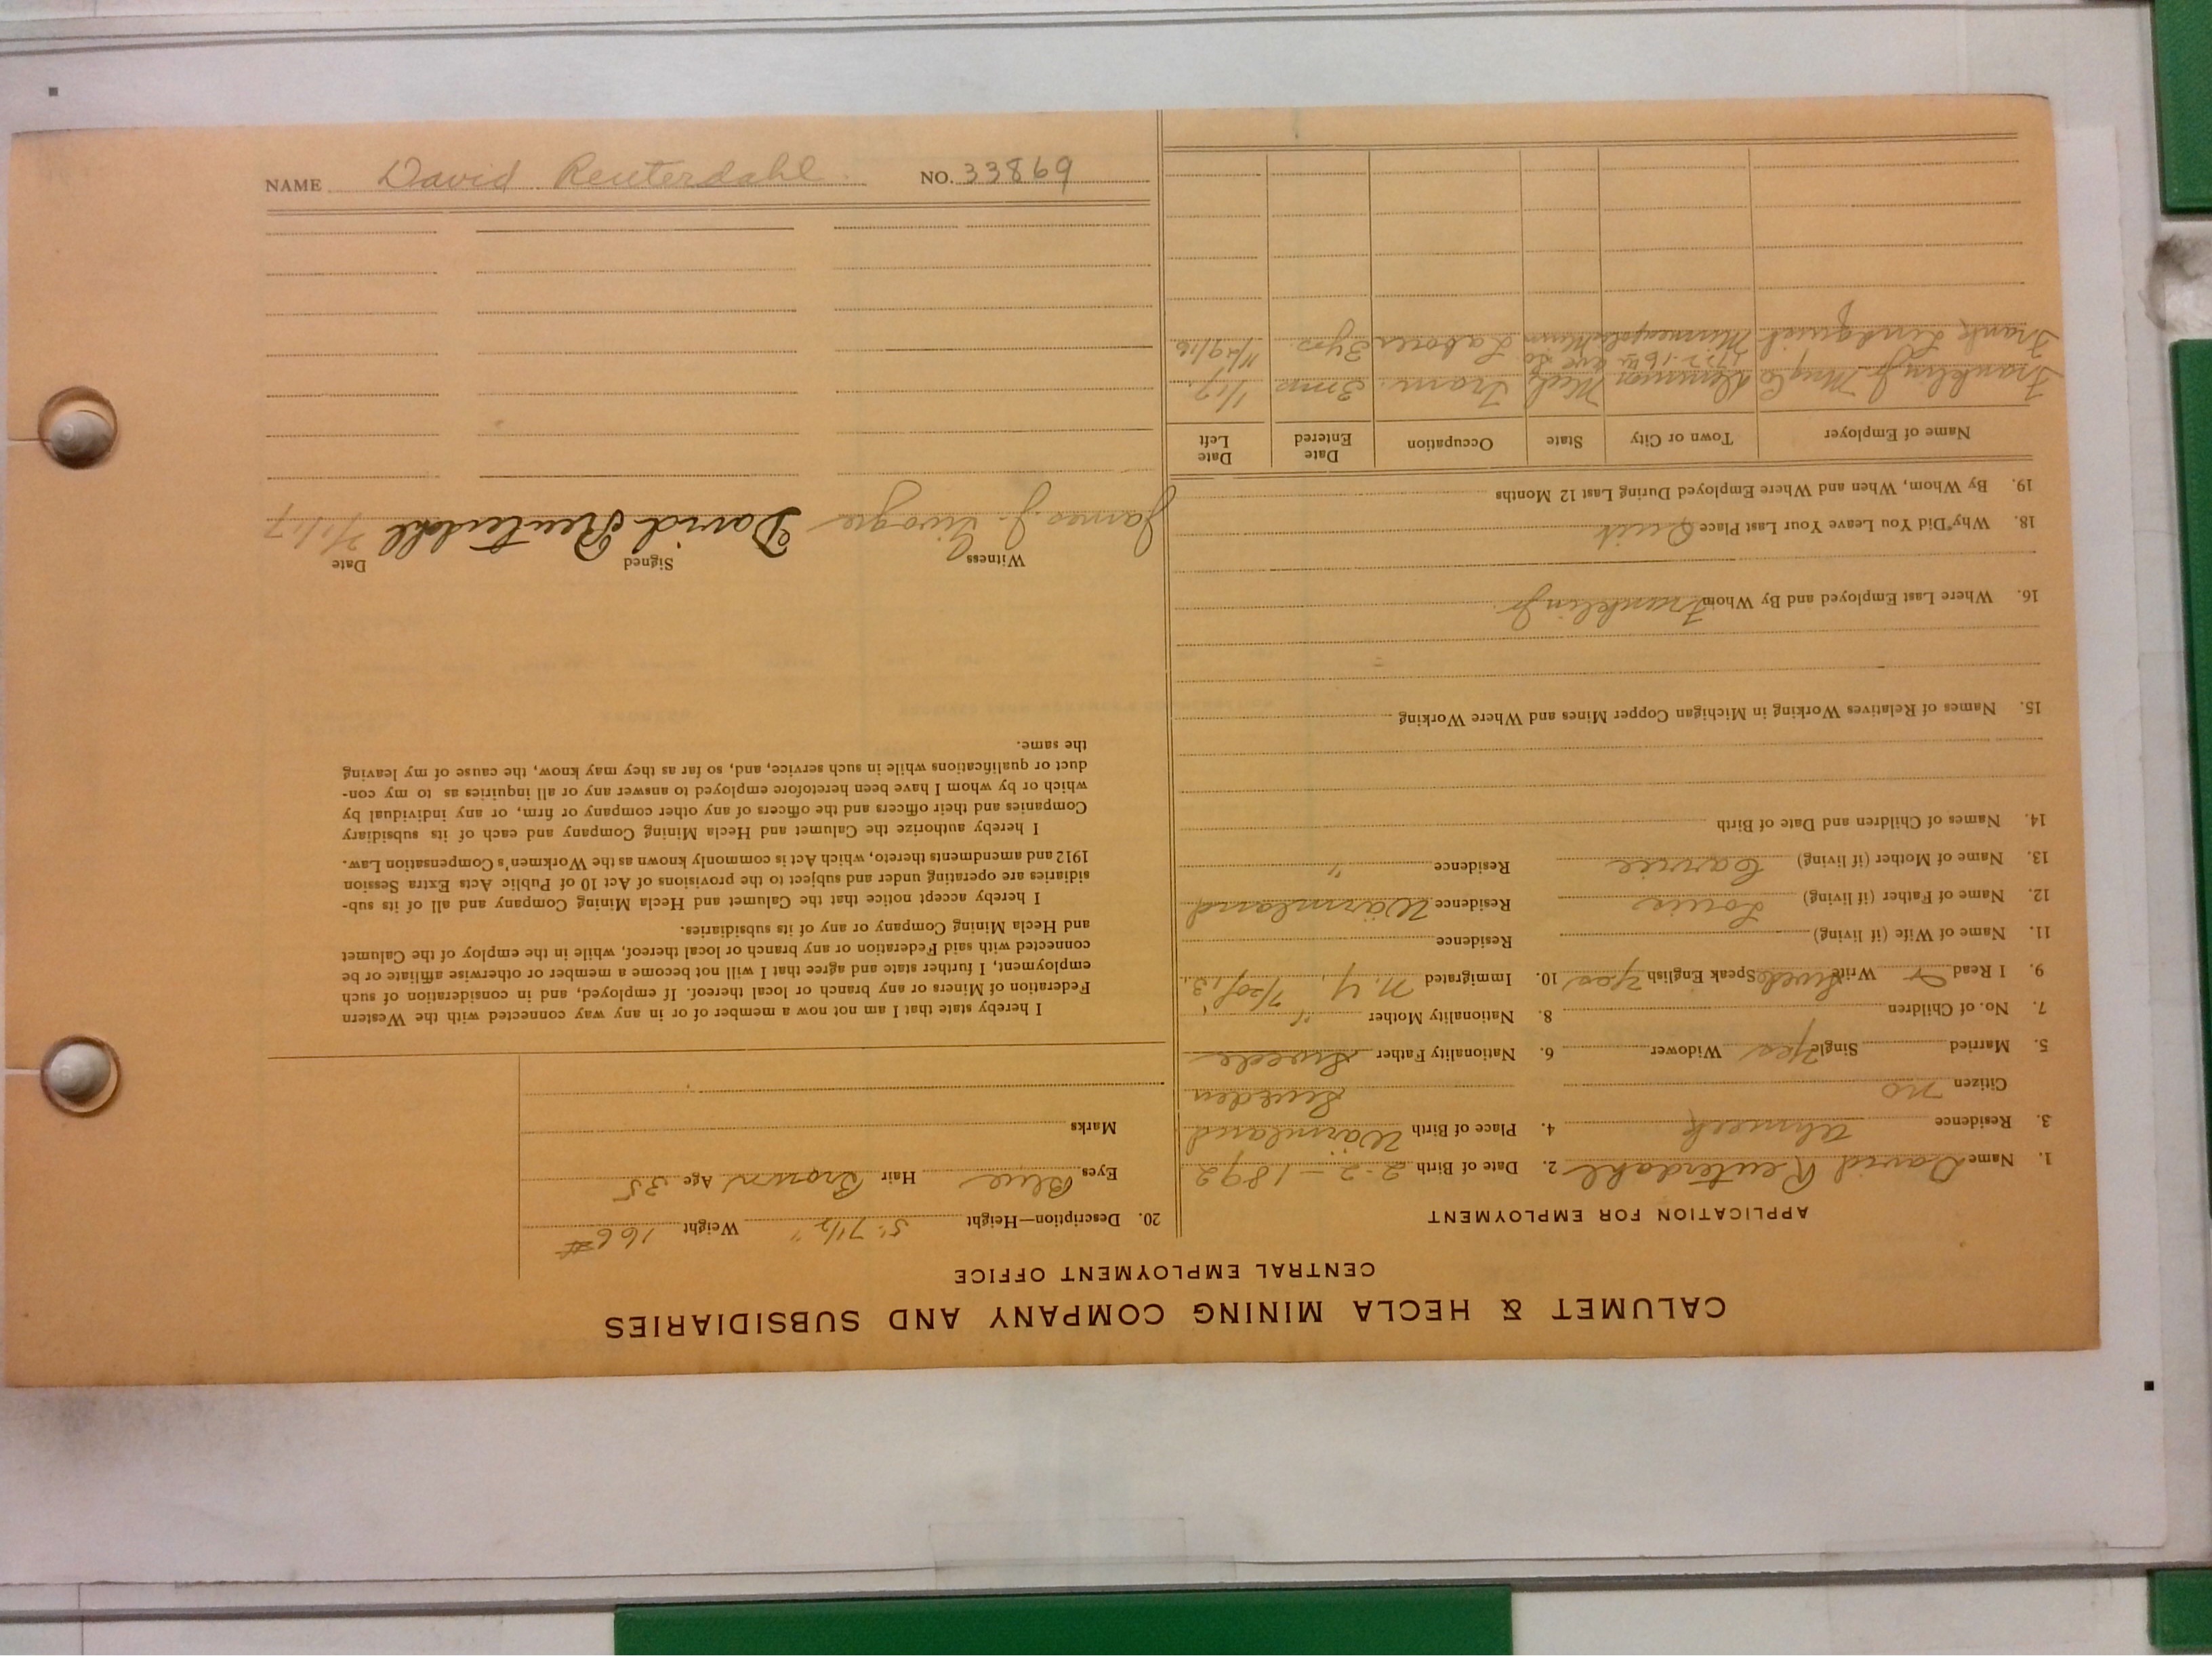 NAME David Reuterdahl. NO. 33869
CALUMET & HECLA MINING COMPANY AND SUBSIDIARIES
CENTRAL EMPLOYMENT OFFICE
APPLICATION FOR EMPLOYMENT
1. Name David Reuterdahl 2. Date of Birth 2-2-1892
3. Residence Ahmeek 4. Place of Birth Wärmland
Citizen no Sweden
5. Married Single Yes Widower 6. Nationality Father Swede
7. No. of Children 8. Nationality Mother "
9. I Read Write Swede Speak English Yes 10. Immigrated N.Y. 7/20/13
11. Name of Wife (if living) Residence
12. Name of Father (if living) Louis Residence Wärmland
13. Name of Mother (if living) Carrie Residence "
14. Names of Children and Date of Birth
15. Names of Relatives Working in Michigan Copper Mines and Where Working
16. Where Last Employed and By Whom Franklin Jr.
18. Why Did You Leave Your Last Place Quit
19. By Whom, When and Where Employed During Last 12 Months
Name of Employer Town or City State Occupation Date Entered Date Left
Franklin Jr. Mng Co Demmon Mich Tram. 3 mo 1/17
16th ave So
Frank Lindquist Minneapolis Minn Laborer 3 yrs 11/29/16
20. Description—Height 5' 7 1/2" Weight 166 #
Eyes Blue Hair Brown Age 25
Marks
I hereby state that I am not now a member of or in any way connected with the Western
Federation of Miners or any branch or local thereof. If employed, and in consideration of such
employment, I further state and agree that I will not become a member or otherwise affiliate or be
connected with said Federation or any branch or local thereof, while in the employ of the Calumet
and Hecla Mining Company or any of its subsidiaries.
I hereby accept notice that the Calumet and Hecla Mining Company and all of its sub-
sidiaries are operating under and subject to the provisions of Act 10 of Public Acts Extra Session
1912 and amendments thereto, which Act is commonly known as the Workmen's Compensation Law.
I hereby authorize the Calumet and Hecla Mining Company and each of its subsidiary
Companies and their officers and the officers of any other company or firm, or any individual by
which or by whom I have been heretofore employed to answer any or all inquiries as to my con-
duct or qualifications while in such service, and, so far as they may know, the cause of my leaving
the same.
Witness Signed Date
James J. David Reuterdahl 2/1/17